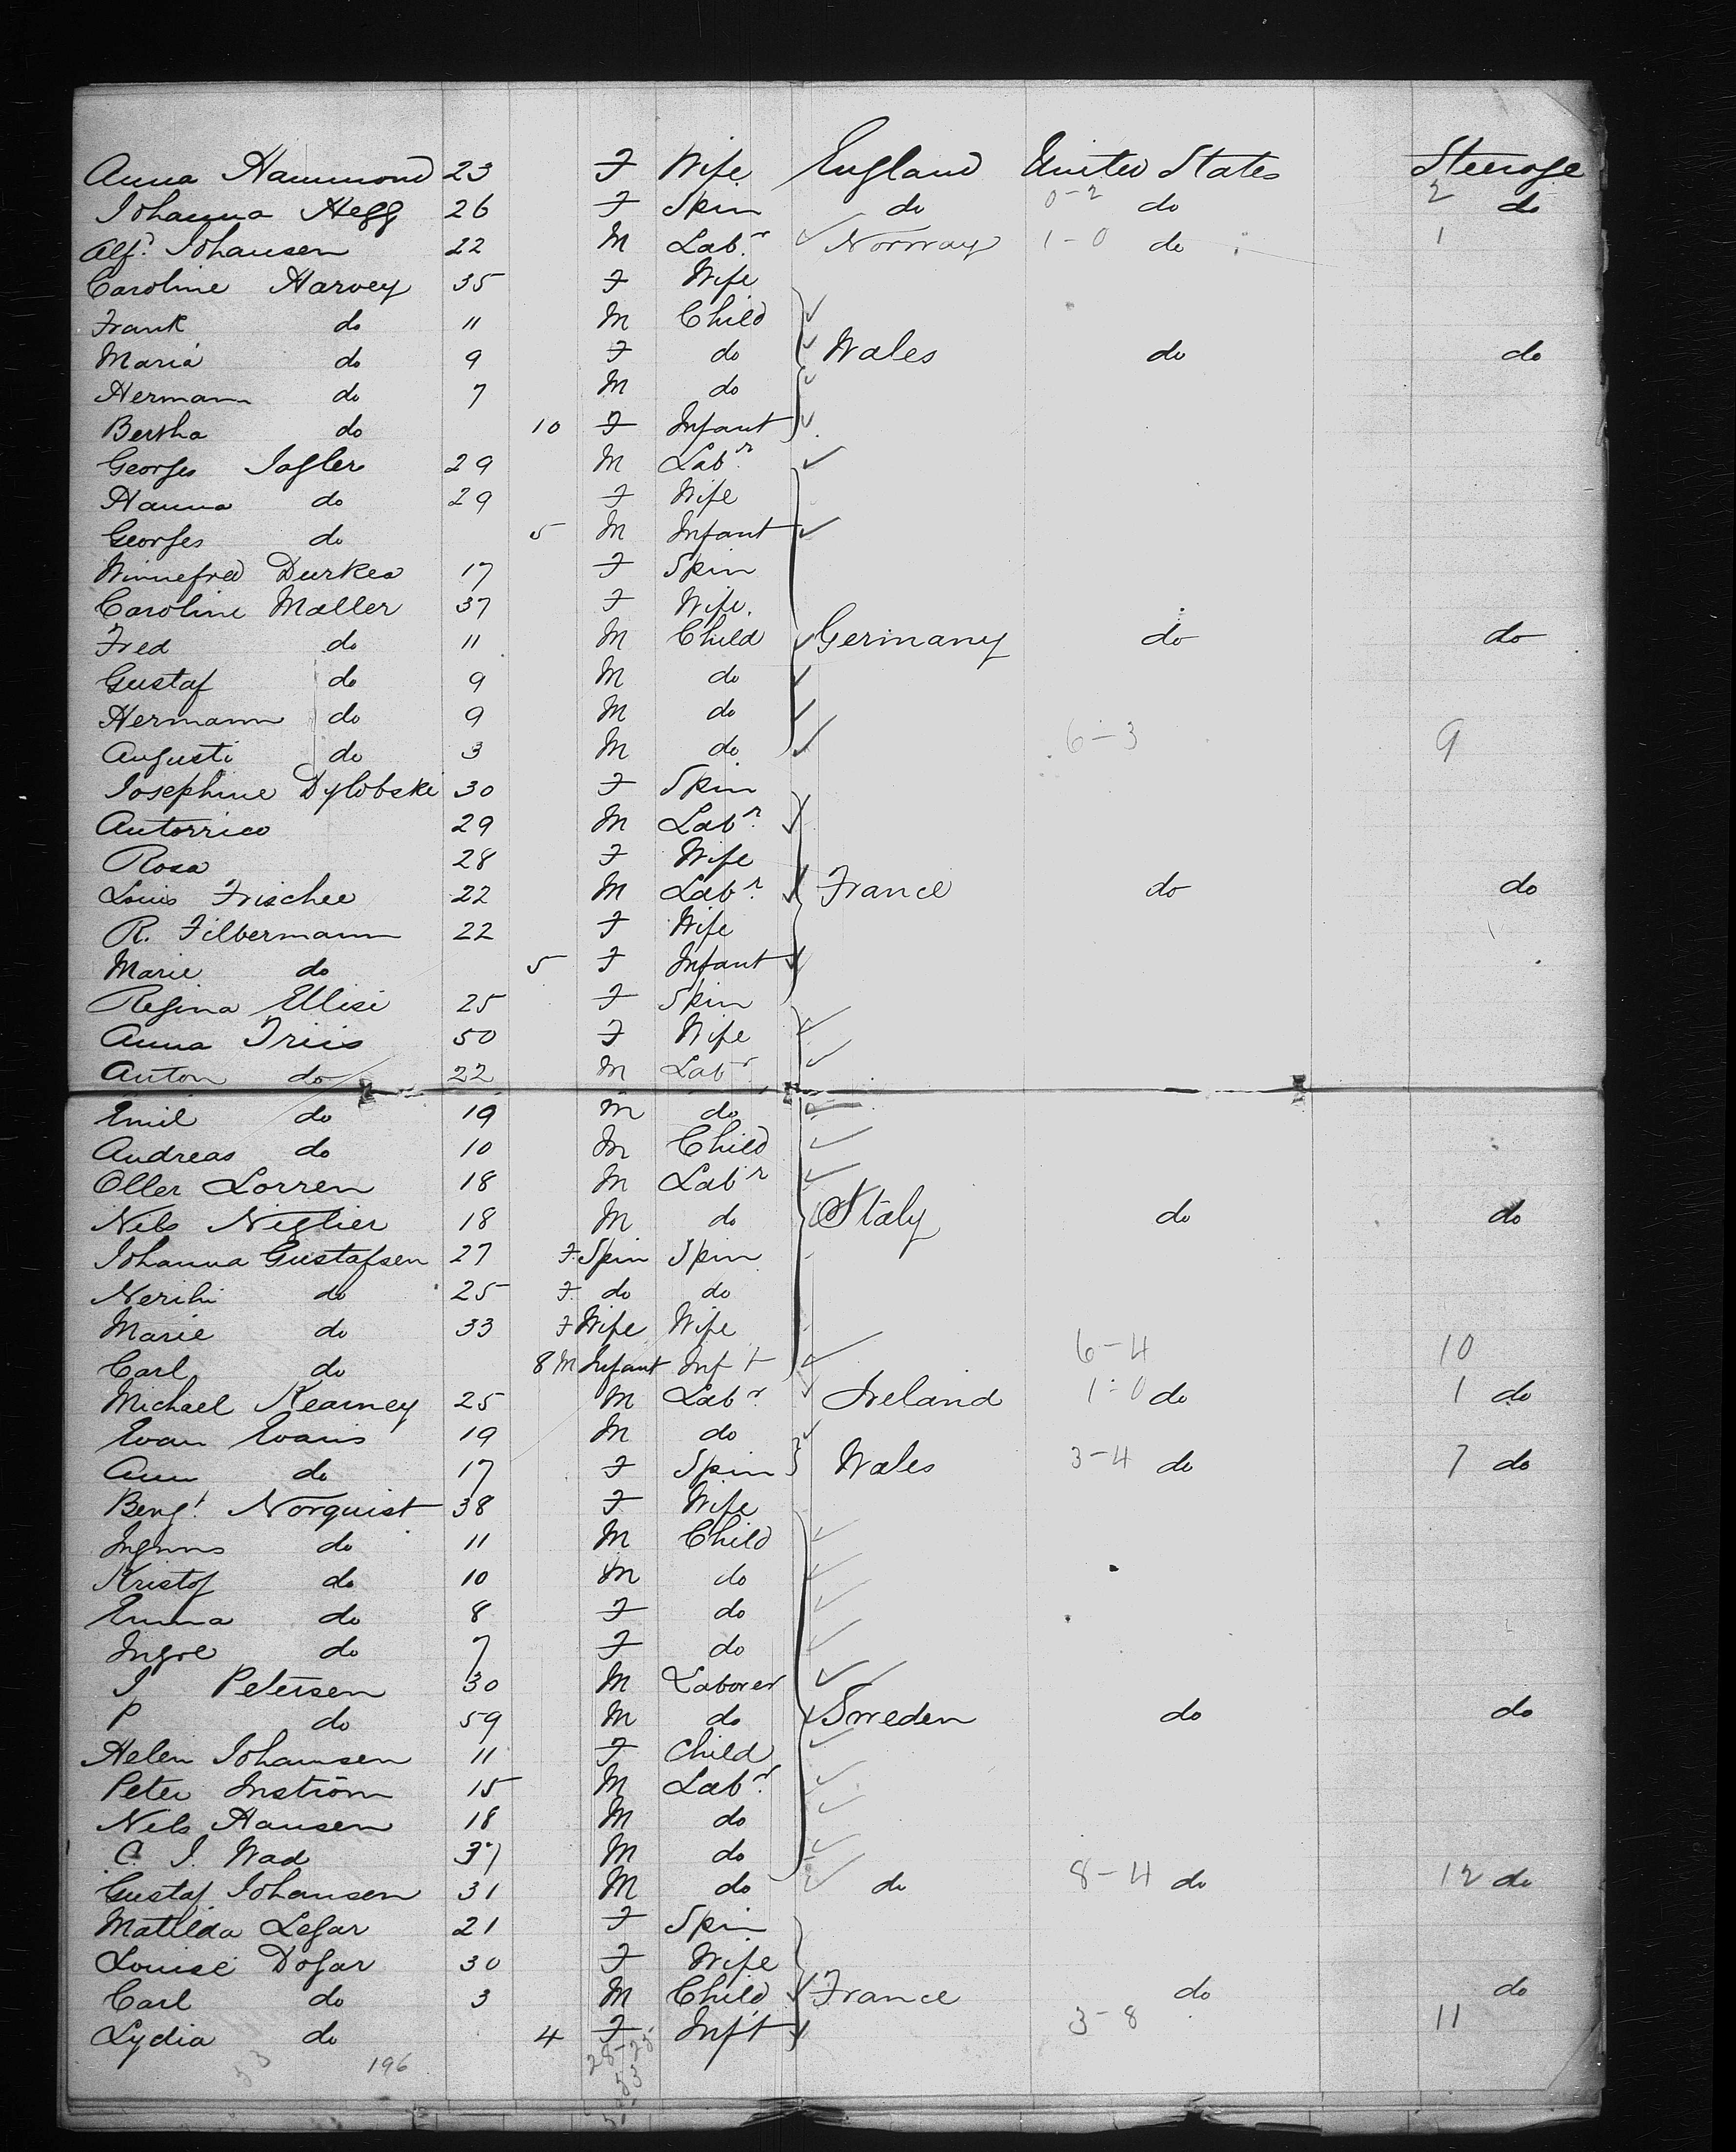 Anna Hammond 23 F Wife England United States Steerage
Johanna Hegg 26 F Spin do 0-2 do 2 do
Alf.d Johansen 22 M Lab.r Norway 1-0 do 1
Caroline Harvey 35 F Wife
Frank do 11 M Child
Maria do 9 F do Wales do do
Hermann do 7 M do
Bertha do 10 F Infant
Georges Jagler 29 M Lab.r
Hanna do 29 F Wife
Georges do 5 M Infant
Winnefred Durkea 17 F Spin
Caroline Maller 37 F Wife.
Fred do 11 M Child Germany do do
Gustaf do 9 M do
Hermann do 9 M do
Augusti do 3 M do 6-3 9
Josephine Dylobski 30 F Spin
Autorrico 29 M Lab.r
Rosa 28 F Wife
Louis Frischee 22 M Lab.r France do do
R. Filbermann 22 F Wife
Marie do 5 F Infant
Regina Ellisi 25 F Spin
Anna Friis 50 F Wife
Anton do 22 M Lab.r
Emil do 19 M do
Andreas do 10 M Child
Oller Lorren 18 M Lab.r
Nils Niglier 18 M do Italy do do
Johanna Gustafsen 27 F. Spin Spin
Nerihi do 25 F. do do
Marie do 33 F Wife Wife
Carl do 8 M Infant Inft 6-4 10
Michael Kearney 25 M Lab.r Ireland 1-0 do 1 do
Evan Evans 19 M do
Ann do 17 F Spin Wales 3-4 do 7 do
Beng.t Norquist 38 F Wife
Ingnns do 11 M Child
Kristof do 10 M do
Emma do 8 F do
Ingre do 7 F do
J Petersen 30 M Laborer
P do 59 M do Sweden do do
Helen Johansen 11 F Child
Peter Inström 15 M Lab.r
Nils Hansen 18 M do
C. J. Wad 37 M do
Gustaf Johansen 31 M do do 8-4 do 12 do
Matilda Legar 21 F Spin
Louise Dogar 30 F Wife
Carl do 3 M Child France do do
Lydia do 4 F Inft 3-8 11
53 196 28 25
53